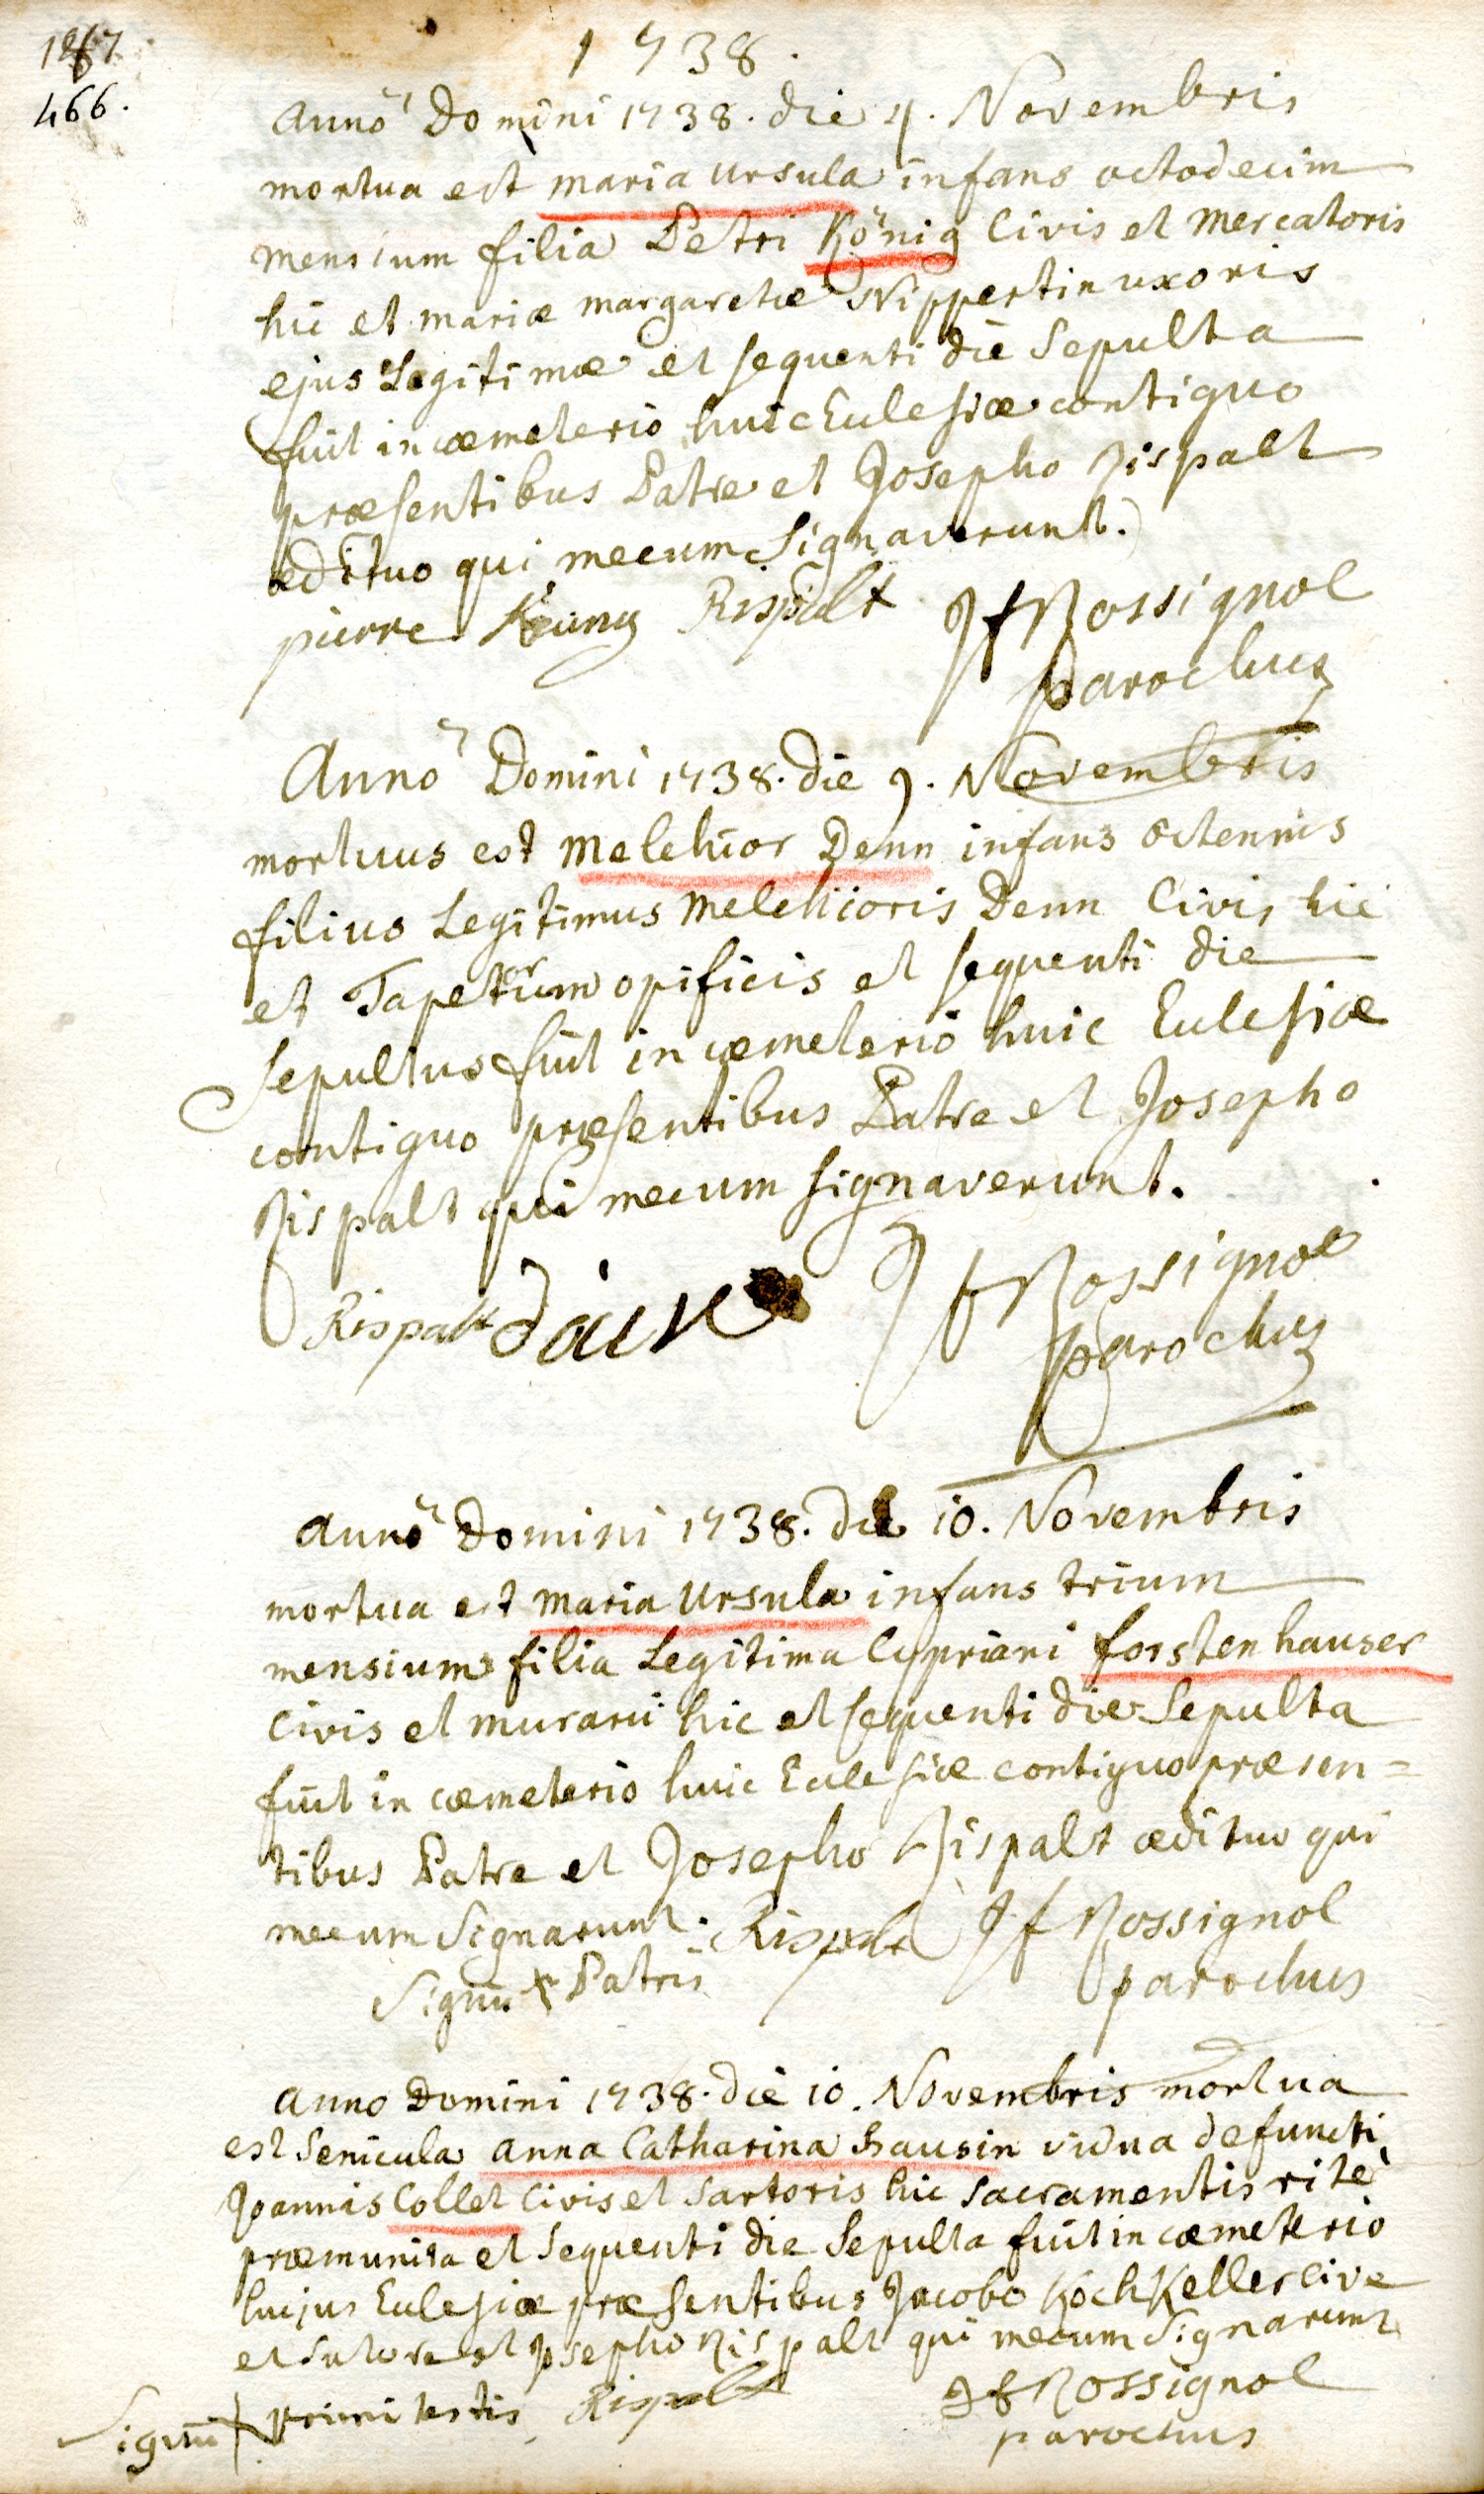 1738.
466.
Anno Domini 1738. die 4. Novembris
mortua est maria ursula infans octodecim
mensium filia Petri König Civis et mercatoris
hic et mariæ margarethæ Nippertin uxoris
ejus Legitimæ et sequenti die Sepulta
fuit in cæmeterio huic Eclesiæ contiguo
præsentibus Patre et Josepho Rispalt
ædituo qui mecum Signaverunt.
pierre König Rispalt JfRossignol
parochus
Anno Domini 1738. die 9. Novembris
mortuus est melchior Denn infans octennis
filius Legitimus melchioris Denn Civis hic
et Tapetum opificis et sequenti die
Sepultus fuit in cæmeterio huic Eclesiæ
contiguo præsentibus Patre et Josepho
Rispalt qui mecum signaverunt.
Rispalt JfRossignol
parochus
anno Domini 1738. die 10. Novembris
mortua est maria ursula infans trium
mensium filia Legitima Cypriani forstenhauser
civis et murarii hic et sequenti die Sepulta
fuit in cæmeterio huic Eclesiæ contiguo præsen=
tibus Patre et Josepho Rispalt ædituo qui
mecum Signarunt. Rispalt JfRossignol
Signū Patris parochus
anno Domini 1738. die 10. Novembris mortua
est Senicula anna Catharina hausin vidua defuncti
Joannis Collet Civis et Sartoris hic Sacramentis ritè
præmunita et Sequenti die Sepulta fuit in cæmeterio
hujus Eclesiæ præsentibus Jacobo Kochkeller cive
et Sutore et Josepho Rispalt qui mecum Signarunt
Signū primi testis Rispalt JfRossignol
parochus